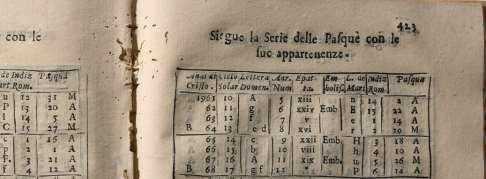 con le
de Indiz Pasqua
art Rom.
u 12 31 M
P 13 20 A
l 14 5 A
C 15 27 M
c 1 16 A
P 2 1 A
f 3 21 A
4 12 A
423
Siegue la Serie delle Pasque con le
sue appartenenze.
Anni di Ciclo Lettera Aur. Epat- Em- L. de Indiz Pasqua
Cristo. Solar Domen. Num ta. bolis. Mart Rom.
1961 10 A 5 xiii n 14 2 A
62 11 g 6 xxiv Emb E 15 22 A
63 12 f 7 v e 1 14 A
B 64 13 e d 8 xvi r 2 29 M
65 14 c 9 xxii Emb. H 3 18 A
66 15 b 10 viii h 4 10 A
67 16 A 11 xix u 5 26 M
B 68 17 g f P 6 14 A